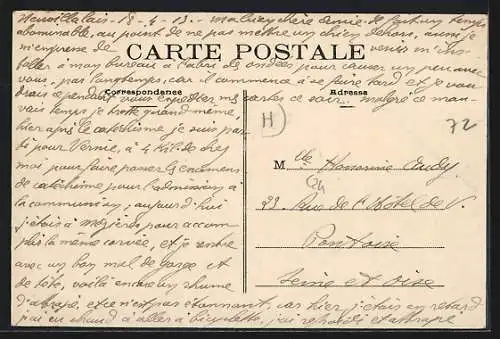 18-4-13 - Ma bien chère Amie il fait un temps
abominable, au point de ne pas mettre un chien dehors, aussi je
m'empresse de venir m'ins-
CARTE POSTALE
taller à mon bureau à l'abri des ondées pour causer un peu avec
vous, pas longtemps, car il commence à se faire tard et je vou-
drais cependant vous expédier mes cartes ce soir, malgré ce mau-
Correspondance
Adresse
vais temps je trotte quand-même,
H
72
hier après le catéchisme je suis par-
ti pour à 4 kil. de chez
moi pour faire passer les examens
de catéchisme pour l'admission à
la communion, aujourd'hui
j'étais à Mézières pour accom-
plir la même corvée, et je rentre
avec un bon mal de gorge et
de tête, voilà encore un rhume
d'attrapé, et ce n'est pas étonnant, car hier j'étais en retard
j'ai eu chaud à aller à bicyclette, j'ai refroidi et attrapé
Mlle Honorine
23 Rue de l'Hôtel de V.
Pontoise
Seine et Oise